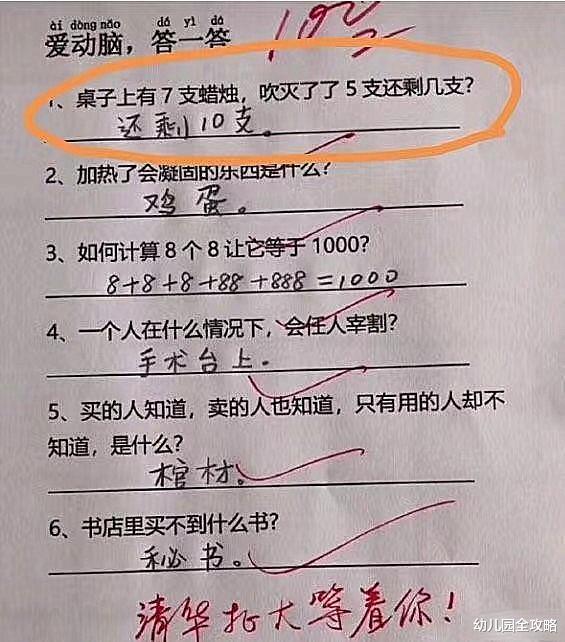 ài dòng nǎo dá yì dá
爱动脑，答一答
100
1、桌子上有7支蜡烛，吹灭了了5支还剩几支？
还剩10支。
2、加热了会凝固的东西是什么？
鸡蛋。
3、如何计算8个8让它等于1000？
8+8+8+88+888=1000
4、一个人在什么情况下，会任人宰割？
手术台上.
5、买的人知道，卖的人也知道，只有用的人却不
知道，是什么？
棺材。
6、书店里买不到什么书？
秘书。
清华北大等着你！
幼儿园全攻略